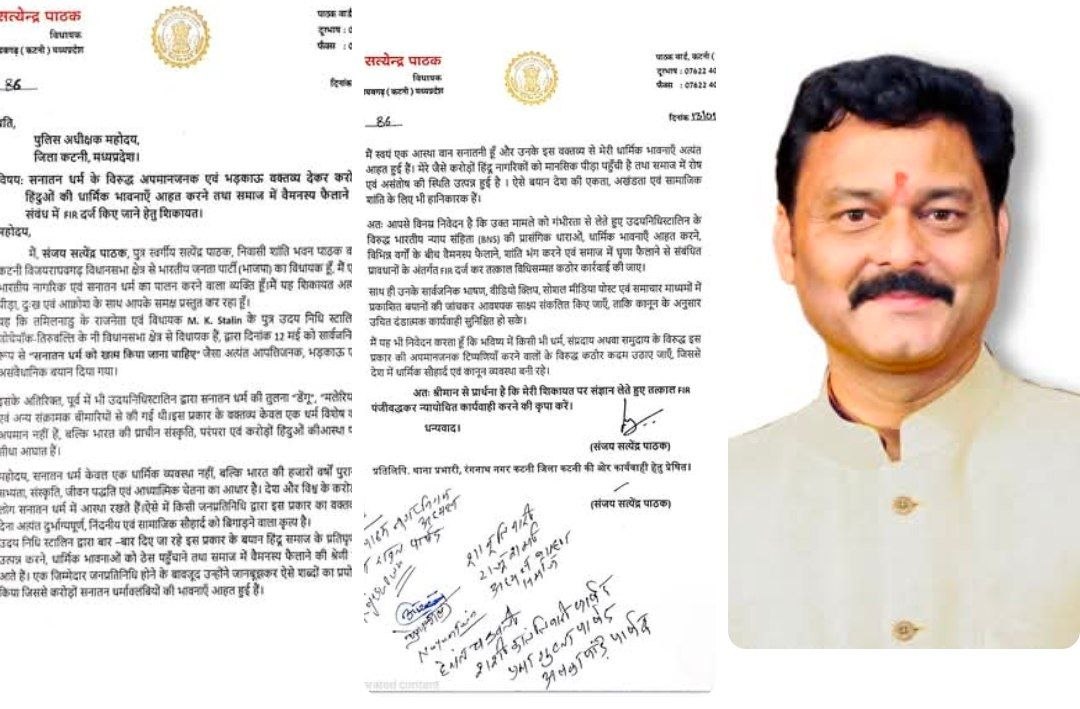 सत्येन्द्र पाठक
विधायक
( कटनी ) मध्यप्रदेश
पाठक वार्ड
दूरभाष : 0
फैक्स : 0
86
दिनांक
पुलिस अधीक्षक महोदय,
जिला कटनी, मध्यप्रदेश।
विषय: सनातन धर्म के विरुद्ध अपमानजनक एवं भड़काऊ वक्तव्य देकर करो
हिंदुओं की धार्मिक भावनाएं आहत करने तथा समाज में वैमनस्य फैलाने
संबंध में FIR दर्ज किए जाने हेतु शिकायत।
महोदय,
मैं, संजय सत्येंद्र पाठक, पुत्र स्वर्गीय सत्येंद्र पाठक, निवासी शांति भवन पाठक व
कटनी विजयराघवगढ़ विधानसभा क्षेत्र से भारतीय जनता पार्टी (भाजपा) का विधायक हूँ, मैं ए
भारतीय नागरिक एवं सनातन धर्म का पालन करने वाला व्यक्ति हूँ।मैं यह शिकायत अत्
पीड़ा, दुःख एवं आक्रोश के साथ आपके समक्ष प्रस्तुत कर रहा हूँ।
यह कि तमिलनाडु के राजनेता एवं विधायक M. K. Stalin के पुत्र उदय निधि स्टालि
के नी विधानसभा क्षेत्र से विधायक हैं, द्वारा दिनांक 12 मई को सार्वजनि
रूप से "सनातन धर्म को खत्म किया जाना चाहिए" जैसा अत्यंत आपत्तिजनक, भड़काऊ ए
असंवैधानिक बयान दिया गया।
इसके अतिरिक्त, पूर्व में भी उदयनिधिस्टालिन द्वारा सनातन धर्म की तुलना "डेंगू", "मलेरिय
एवं अन्य संक्रामक बीमारियों से की गई थी।इस प्रकार के वक्तव्य केवल एक धर्म विशेष क
अपमान नहीं हैं, बल्कि भारत की प्राचीन संस्कृति, परंपरा एवं करोड़ों हिंदुओं कीआस्था प
सीधा आघात हैं।
महोदय, सनातन धर्म केवल एक धार्मिक व्यवस्था नहीं, बल्कि भारत की हजारों वर्षों पुरा
सभ्यता, संस्कृति, जीवन पद्धति एवं आध्यात्मिक चेतना का आधार है। देश और विश्व के करो
लोग सनातन धर्म में आस्था रखते हैं।ऐसे में किसी जनप्रतिनिधि द्वारा इस प्रकार का वक्त
देना अत्यंत दुर्भाग्यपूर्ण, निंदनीय एवं सामाजिक सौहार्द को बिगाड़ने वाला कृत्य है।
उदय निधि स्टालिन द्वारा बार –बार दिए जा रहे इस प्रकार के बयान हिंदू समाज के प्रतिघृ
उत्पन्न करने, धार्मिक भावनाओं को ठेस पहुँचाने तथा समाज में वैमनस्य फैलाने की श्रेणी
आते हैं। एक जिम्मेदार जनप्रतिनिधि होने के बावजूद उन्होंने जानबूझकर ऐसे शब्दों का प्रयो
किया जिससे करोड़ों सनातन धर्मावलंबियों की भावनाएँ आहत हुई हैं।
सत्येंद्र पाठक
विधायक
( कटनी ) मध्यप्रदेश
पाठक वार्ड, कटनी (
दूरभाष : 07622 40
फैक्स : 07622 40
86
दिनांक
मैं स्वयं एक आस्था वान सनातनी हूँ और उनके इस वक्तव्य से मेरी धार्मिक भावनाएँ अत्यंत
आहत हुई हैं। मेरे जैसे करोड़ों हिंदू नागरिकों को मानसिक पीड़ा पहुँची है तथा समाज में रोष
एवं असंतोष की स्थिति उत्पन्न हुई है । ऐसे बयान देश की एकता, अखंडता एवं सामाजिक
शांति के लिए भी हानिकारक हैं।
अतः आपसे विनम्र निवेदन है कि उक्त मामले को गंभीरता से लेते हुए उदयनिधिस्टालिन के
विरुद्ध भारतीय न्याय संहिता (BNS) की प्रासंगिक धाराओं, धार्मिक भावनाएँ आहत करने,
विभिन्न वर्गों के बीच वैमनस्य फैलाने, शांति भंग करने एवं समाज में घृणा फैलाने से संबंधित
प्रावधानों के अंतर्गत FIR दर्ज कर तत्काल विधिसम्मत कठोर कार्रवाई की जाए।
साथ ही उनके सार्वजनिक भाषण, वीडियो क्लिप, सोशल मीडिया पोस्ट एवं समाचार माध्यमों में
प्रकाशित बयानों की जांचकर आवश्यक साक्ष्य संकलित किए जाएँ, ताकि कानून के अनुसार
उचित दंडात्मक कार्यवाही सुनिश्चित हो सके।
मैं यह भी निवेदन करता हूँ कि भविष्य में किसी भी धर्म, संप्रदाय अथवा समुदाय के विरुद्ध इस
प्रकार की अपमानजनक टिप्पणियाँ करने वालों के विरुद्ध कठोर कदम उठाए जाएँ, जिससे
देश में धार्मिक सौहार्द एवं कानून व्यवस्था बनी रहे।
अतः श्रीमान से प्रार्थना है कि मेरी शिकायत पर संज्ञान लेते हुए तत्काल FIR
पंजीवद्धकर न्यायोचित कार्यवाही करने की कृपा करें।
धन्यवाद।
(संजय सत्येंद्र पाठक)
प्रतिलिपि. थाना प्रभारी, रंगनाथ नगर कटनी जिला कटनी की ओर कार्यवाही हेतु प्रेषित।
(संजय सत्येंद्र पाठक)